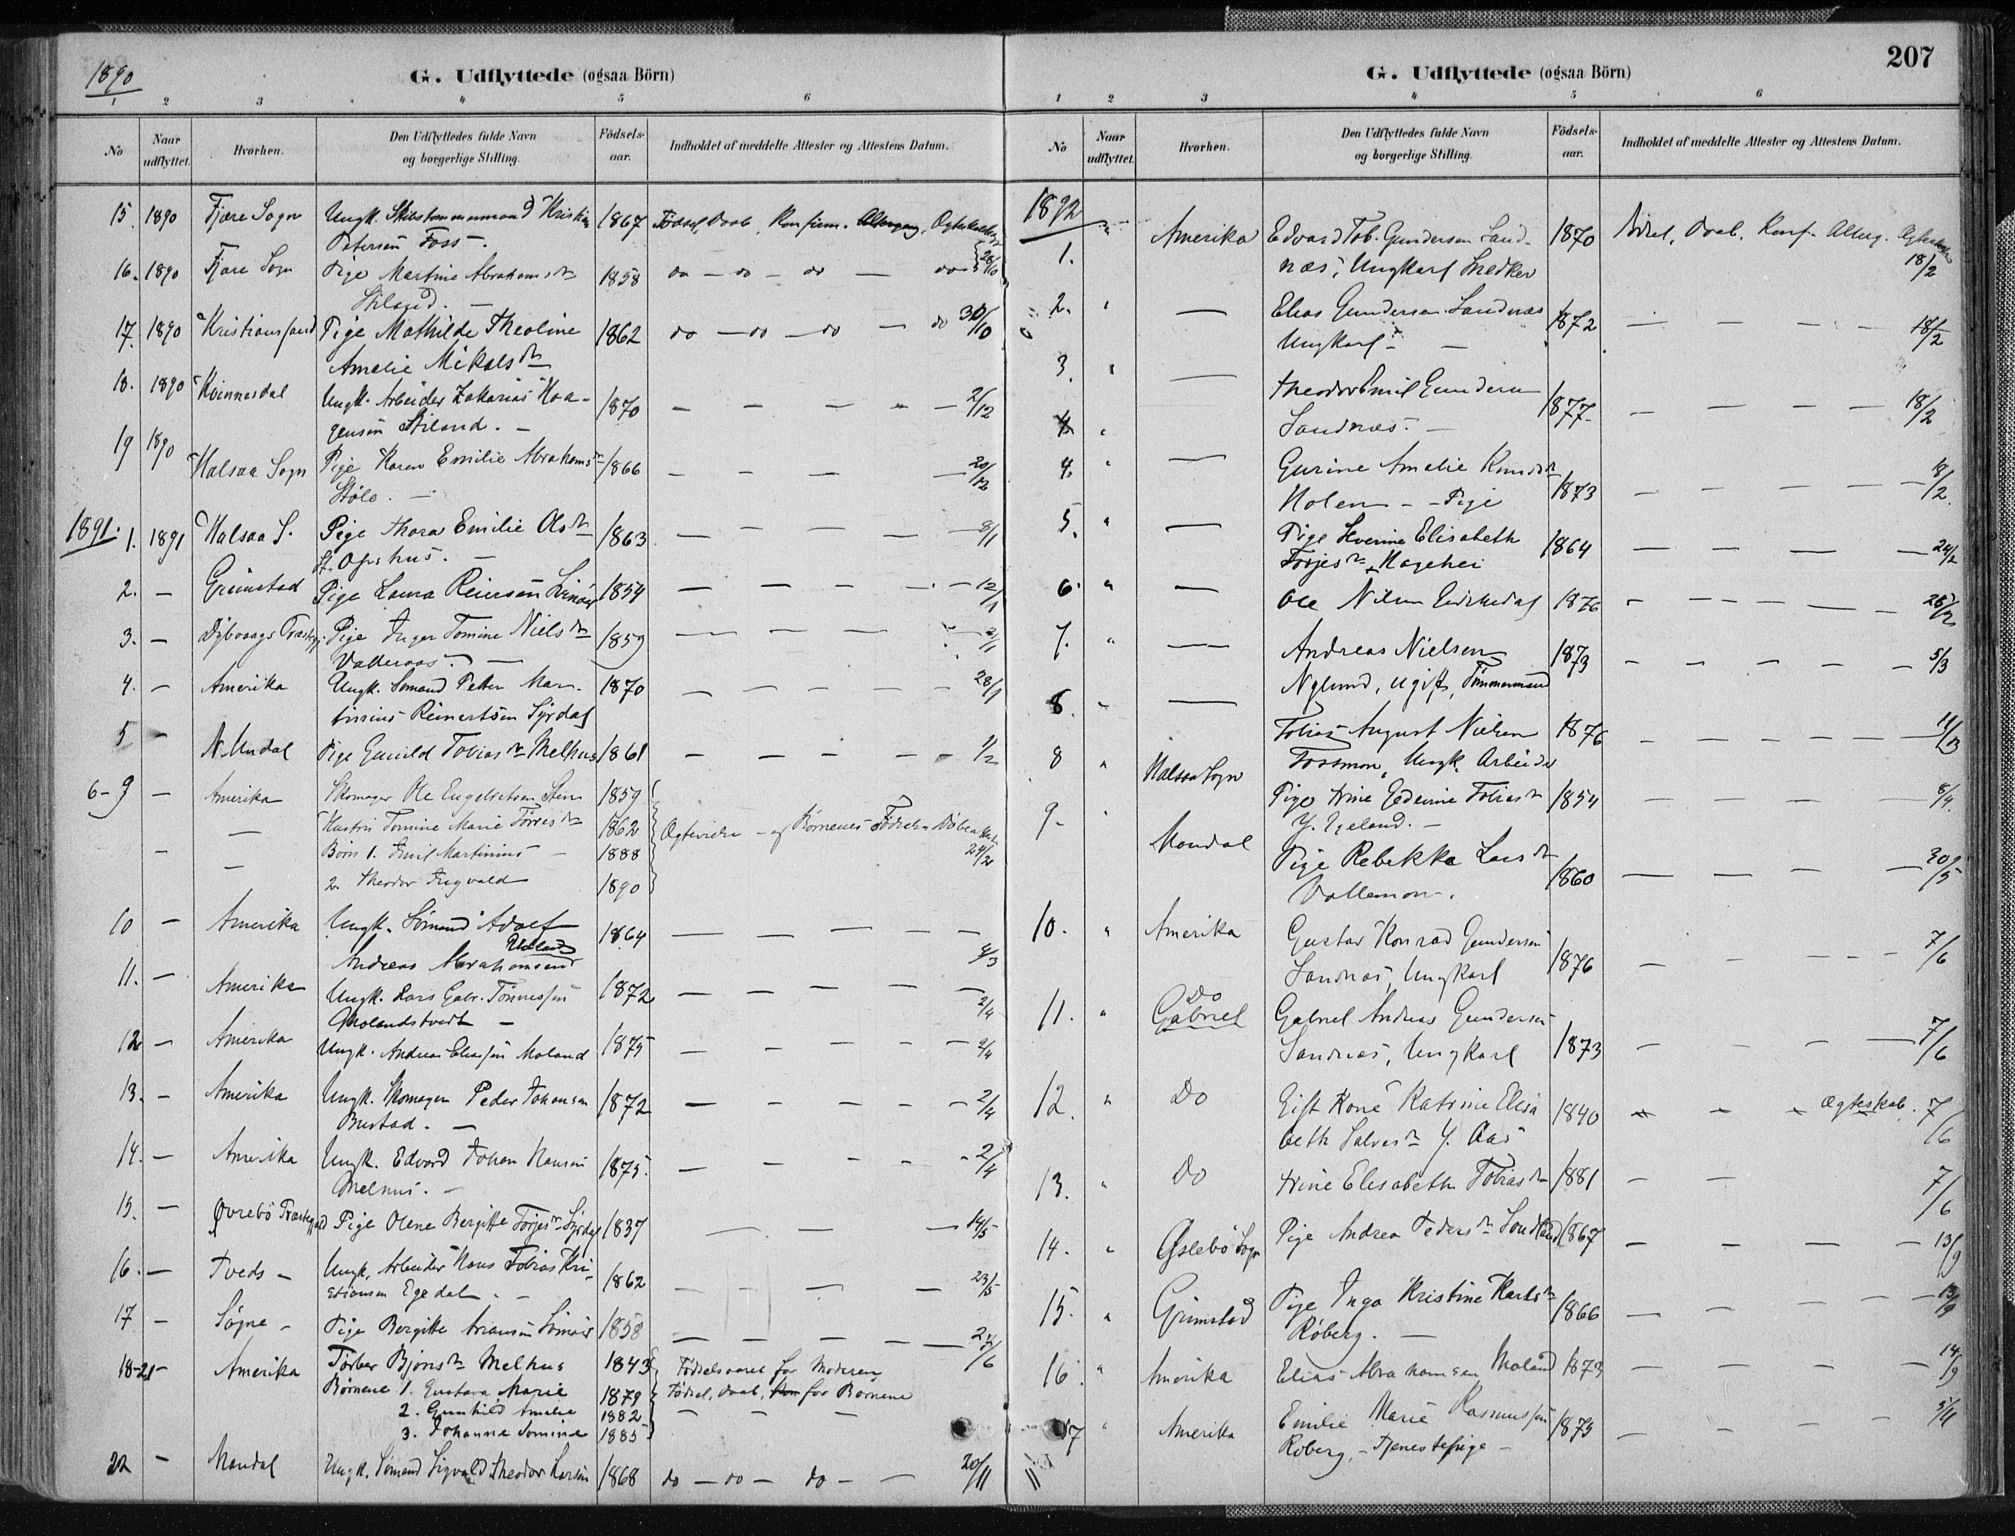 1890
G. Udflyttede (ogsaa Börn)
1 2 3 4 5 6
No
Naar udflyttet.
Hvorhen.
Den Udflyttedes fulde Navn og borgerlige Stilling.
Födsels-aar.
Indholdet af meddelte Attester og Attestens Datum.
15. 1890 Fjære Sogn Ungk. Skibstømmermand Kristian 1867 Fødsel, Daab, Konfirm. Altergang,
Petersen Foss.
16. 1890 Fjære Sogn Pige Martine Abrahamsdtr 1858 do — do — do — do 28/10
17. 1890 Kristianssand Pige Mathilde Theoline 1862 do — do — do — do 30/10
Amalie Mikalsdtr
18. 1890 Kvinnesdal Ungk. Arbeider Zakarias Haa- 1870 — — — — — 2/12
gensen Stiland. —
19 1890 Halsaa Sogn Pige Karen Emilie Abrahamsdtr 1866 — — — — 20/12
Støle. —
1891. 1. 1891 Halsaa S. Pige Thora Emilie Olsdtr 1863 — — — — 8/1
2. — Grimstad Pige Laura Reiersen 1854 — — — — 12/1
3. — Dybvaags Præstegj. Pige Inger Tomine Nielsdtr 1859 — — —
4. — Amerika Ungk. Sømand Petter Mar- 1870 — — — — 28/1
tinius Reinertsen Syrdal
5 — N. Undal Pige Gunild Tobiasdtr Melhus 1861 — — — —
6-9 — Amerika Skomager Ole 1859
— Hustru Tomine Marie Tørresdtr 1862
— — Børn 1. Emil Martinius — 1888
2. Theodor Ingvald 1890
10 — Amerika Ungk. Sømand Adolf 1864 — — — — 4/3
Andreas Abrahamsen
11. — Amerika Ungk. Lars Gabr. Tønnessen 1872 — — — — 2/4
Molandstvedt —
12 — Amerika Ungk. Andreas Eliassen Moland 1875 — — — — 2/4
13. — Amerika Ungk. Skomager Peder Johansen 1872 — — — — 2/4
Bustad. —
14. — Amerika Ungk. Edvard Johan Hansen 1875. — — — — 2/4
Melhus. —
15. — Øvrebö Præstegjeld Pige Olene Bergitte Torjesdtr Syrdal 1837 — — — 14/5
16. — Tveds — Ungk. Arbeider Hans Tobias Kri- 1862 — — — — 23/5
stiansen Egedal. —
17 — Søgne — Pige Bergitte 1858 — — — — 27/6
18-21 — Amerika Torbor Bjørnsdtr Melhus 1843 Fødselsaaret for Moderen
Børnene 1. Gustava Marie 1879 Fødsel, Daab, for Børnene
2. Gunhild Amalie 1882 — — —
3. Johanna Tomine 1885
22 — Mandal Ungk. Sømand Sigvald Theodor Larsen 1868 do — do — do — — 20/11
207
G. Udflyttede (ogsaa Börn)
1 2 3 4 5 6
No
Naar udflyttet.
Hvorhen.
Den Udflyttedes fulde Navn og borgerlige Stilling.
Födsels-aar.
Indholdet af meddelte Attester og Attestens Datum.
1892
1. Amerika Edvard Tob. Gundersen Sand- 1870 Daab, Konf. Alterg. 18/2
næs, Ungkarl Snedker
2. " — Elias Gundersen Sandnæs 1872 — — — — 18/2
Ungkarl —
3. " — Theodor Emil Gundersen 1877 — — — — 18/2
Sandnæs. —
4. " — Gurine Amalie Knudsdtr 1873 — — — — 18/2
Holen — Pige
5. " — Pige Severine Elisabeth 1864 — — — — 24/2
Torjesdtr Hagehei
6. " — Ole Nilsen 1876 — — — — —
7. " — Andreas Nielsen 1873 — — — — 5/3
Nylund, ugift, Tømmermand
8. " — Tobias August Nielsen 1876 — — — —
Fossmon, Ungk. Arbeider
8 " Halsaa Sogn Pige Trine Tobiasdtr 1854 — — — — 8/4
Y. Egeland. —
9. " Mandal Pige Rebekka Larsdtr 1860 — — — — 30/5
Vallemon.
10. " Amerika Gustav Konrad Gundersen 1876 — — — — 7/6
Sandnæs, Ungkarl
11. " Do Gabriel Gabriel Andreas Gundersen 1873 — — — — 7/6
Sandnæs, Ungkarl
12. " Do Gift Kone Katrine Elisa 1840 — — — Ægteskab. 7/6
beth Y. Aas
13. " Do Trine Elisabeth Tobiasdtr 1881 — — 7/6
14. " Øslebö Sogn Pige Andrea Pedersdtr Sondland 1867 — — — — 13/9
15. " Grimstad Pige Inga Kristine Karlsdtr 1866 — — — — 13/9
Røberg. —
16 " Amerika Elias Abrahamsen Moland 1873 — — — — 14/9
17 " Amerika Emilie Marie Rasmussen 1873 — — — —
Røberg, — Tjenestepige —